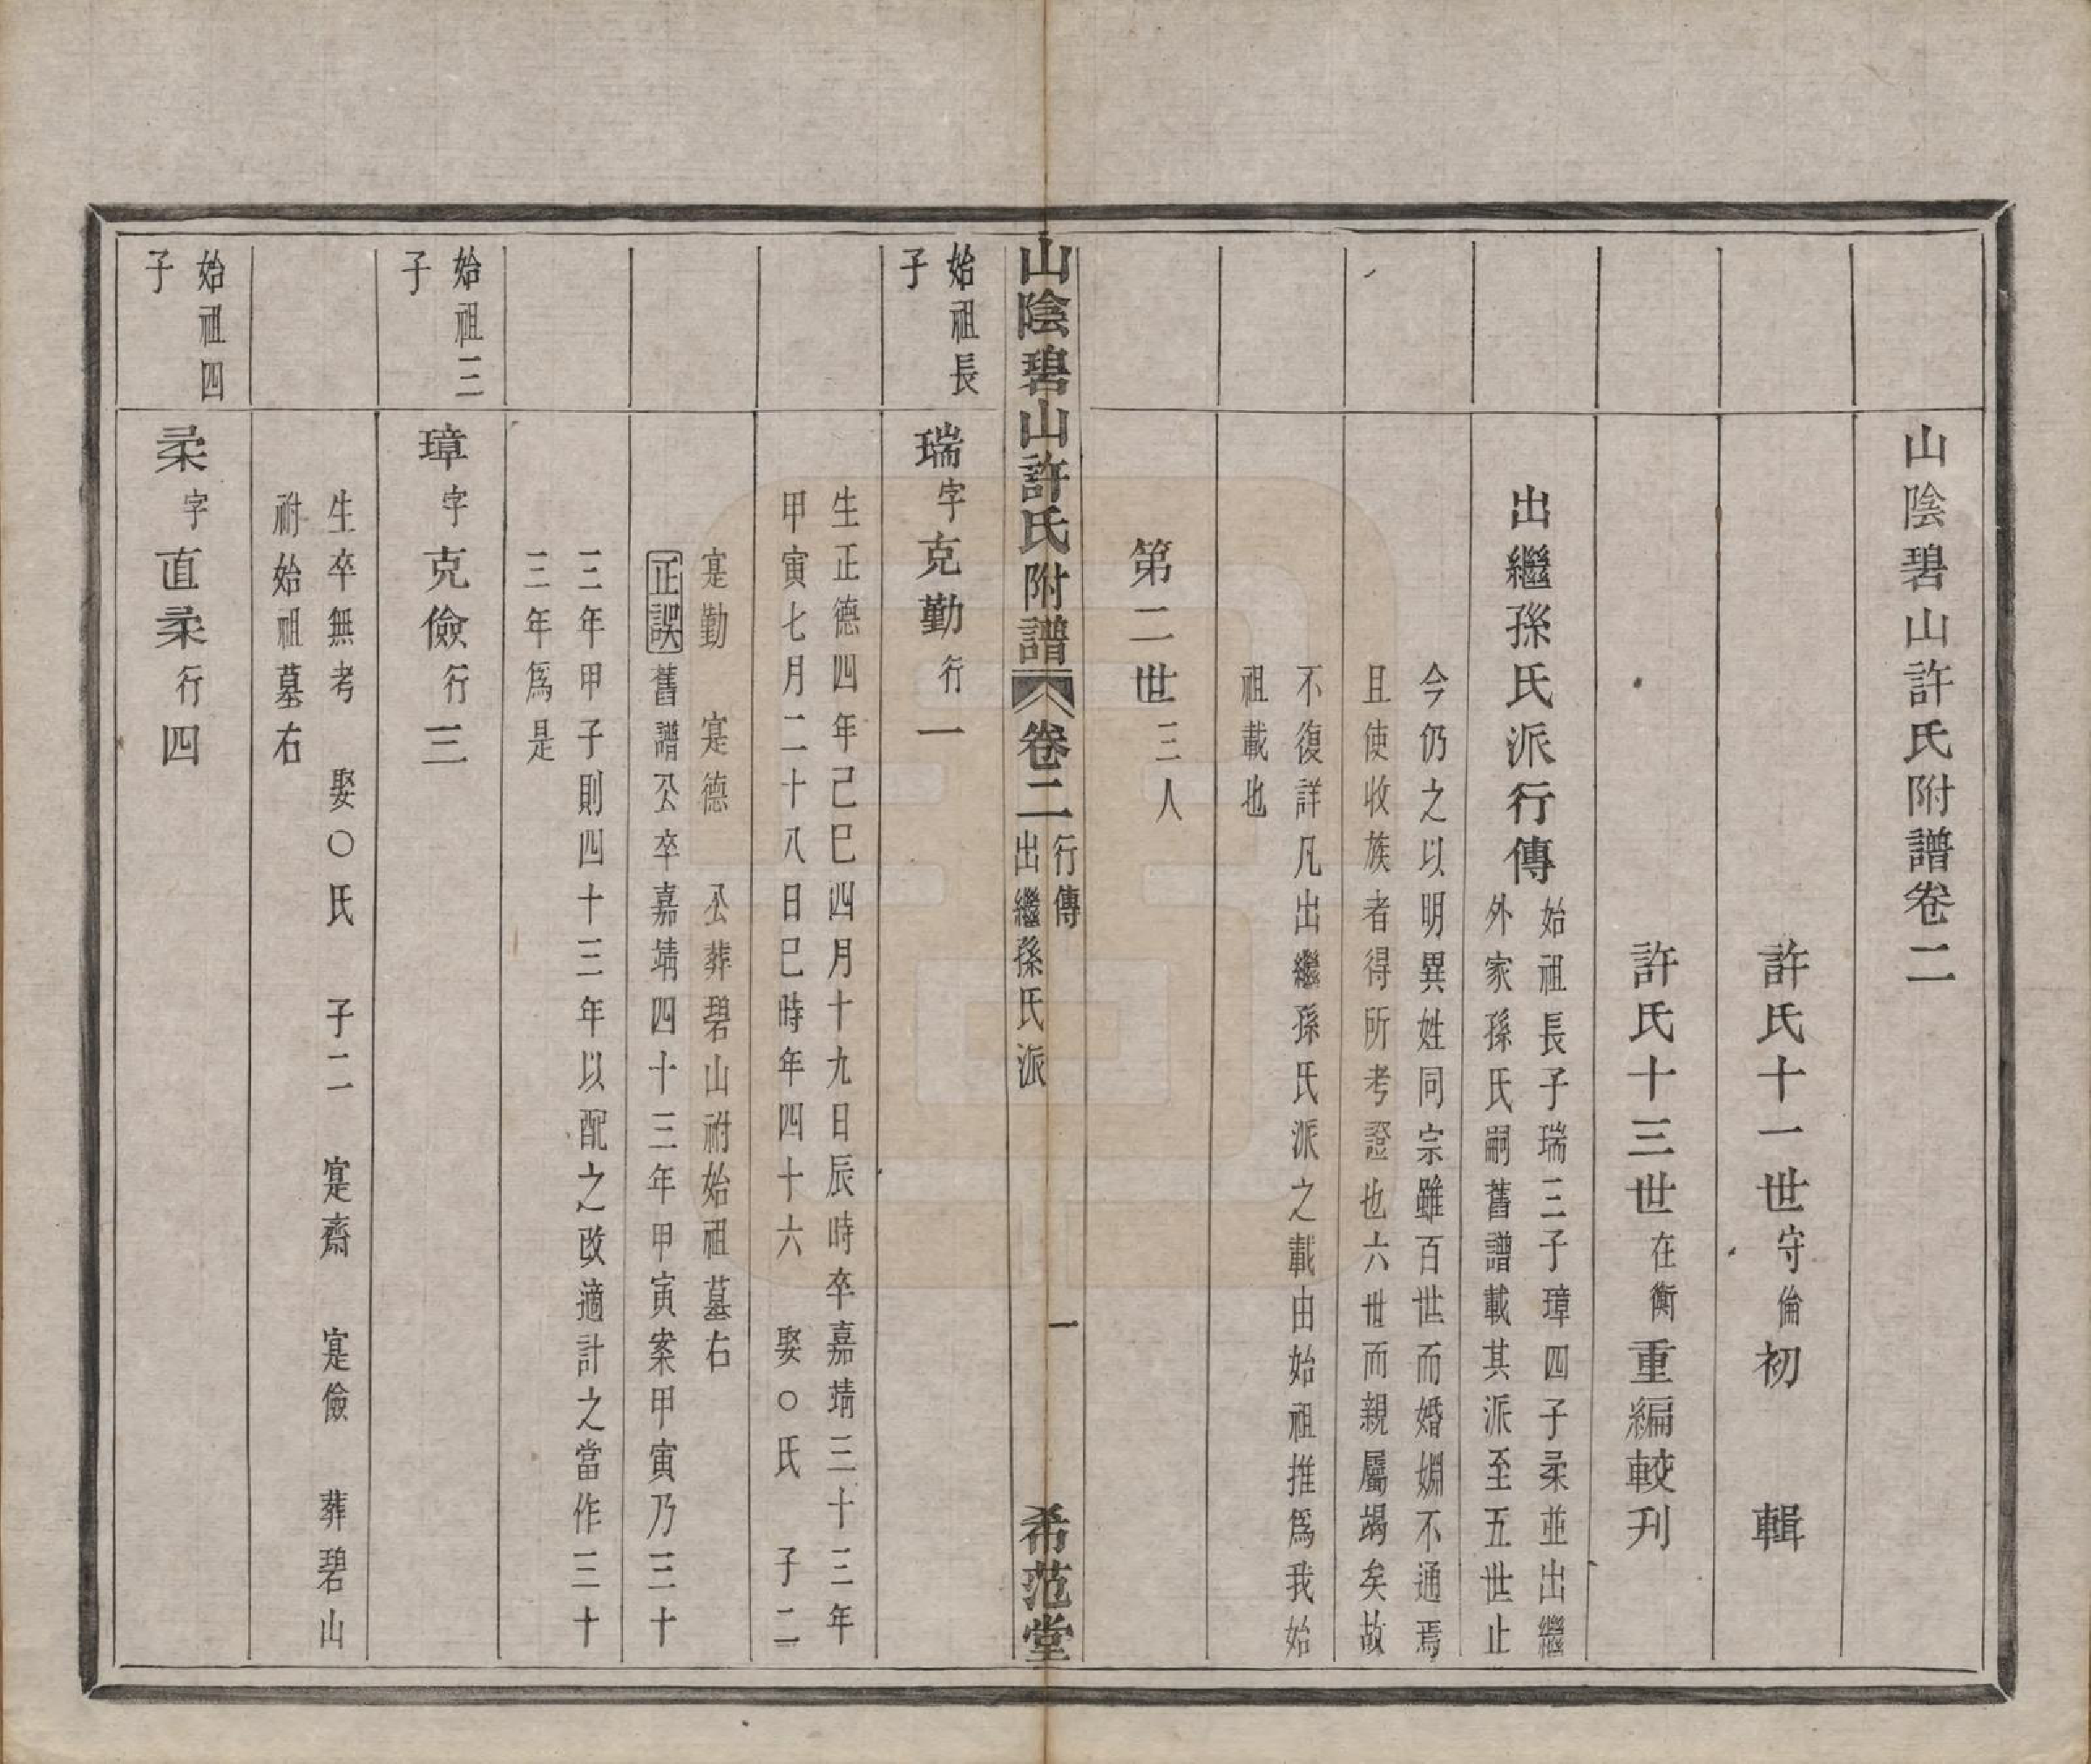 山陰碧山許氏附譜卷二
許氏十一世守倫初　輯
許氏十三世在衡重編較刊
出繼孫氏派行傳
始祖長子瑞三子璋四子柔並出繼
外家孫氏嗣舊譜載其派至五世止
今仍之以明異姓同宗雖百世而婚姻不通焉
且使收族者得所考證也六世而親屬竭矣故
不復詳凡出繼孫氏派之載由始祖推爲我始
祖載也
第二世三人
山陰碧山許氏附譜
卷二
行傳
出繼孫氏派
一
希范堂
始祖長
子
瑞字克勤行一
生正德四年己巳四月十九日辰時卒嘉靖三十三年
甲寅七月二十八日巳時年四十六　娶○氏　子二
寔勤　寔德　公葬碧山祔始祖墓右
正誤舊譜公卒嘉靖四十三年甲寅案甲寅乃三十
三年甲子則四十三年以配之改適計之當作三十
三年爲是
始祖三
子
璋字克儉行三
生卒無考　娶○氏　子二　寔齋　寔儉　葬碧山
祔始祖墓右
始祖四
子
柔字直柔行四